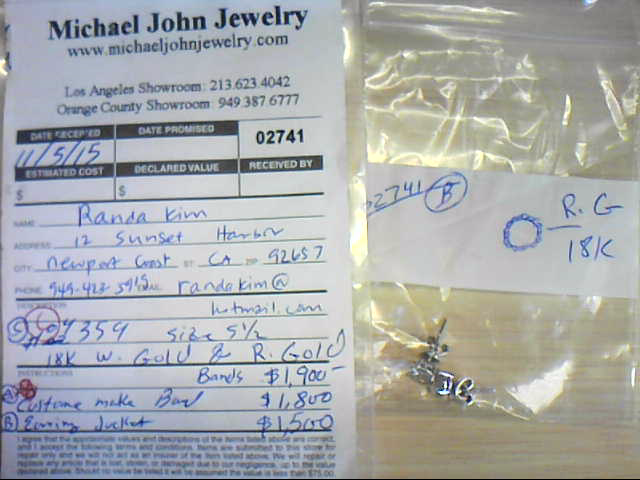 Michael John Jewelry
www.michaeljohnjewelry.com
Los Angeles Showroom: 213.623.4042
Orange County Showroom: 949.387.6777
DATE RECEIVED DATE PROMISED 02741
11/5/15
ESTIMATED COST DECLARED VALUE RECEIVED BY
$ $
NAME Randa Kim
ADDRESS 12 Sunset Harbor
CITY Newport Coast ST CA ZIP 92657
PHONE 949-422-5919 EMAIL randakim@
DESCRIPTION hotmail.com
59359 size 5 1/2
18K W. Gold & R. Gold
INSTRUCTIONS Bands $1,900-
A Custome make Band $1,800
B Earring Jacket $1,500
I agree that the approximate values and descriptions of the items listed above are correct,
and I accept the following terms and conditions. Items are submitted to this store for
repair only and we will not act as an insurer of the item listed above. We will repair or
replace any article that is lost, stolen, or damaged due to our negligence, up to the value
declared above. Should no value be listed it will be assumed the value is less than $75.00
02741 B
R. G
18K